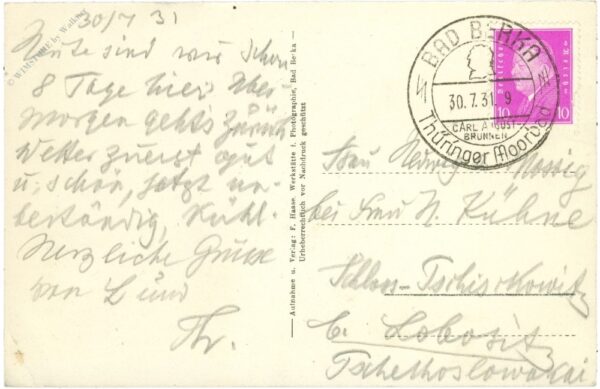 30/7 31
Heute sind wir schon
8 Tage hier. Über
morgen geht's zurück
Wetter zuerst gut
u. schön, jetzt un-
beständig, kühl.
Herzliche Grüsse
von L und
Th.
Aufnahme u. Verlag: F. Haase, Werkstätte f. Photographie, Bad Berka
Urheberrechtlich vor Nachdruck geschützt
BAD BERKA
30.7.31. 9
CARL AUGUST
BRUNNEN
Thüringer Moorbad
10 10
Frau
bei Frau N. Kühne
Schloss Tschischkowitz
b. Lobositz
Tschechoslowakei
© WIMSTORE by Walking